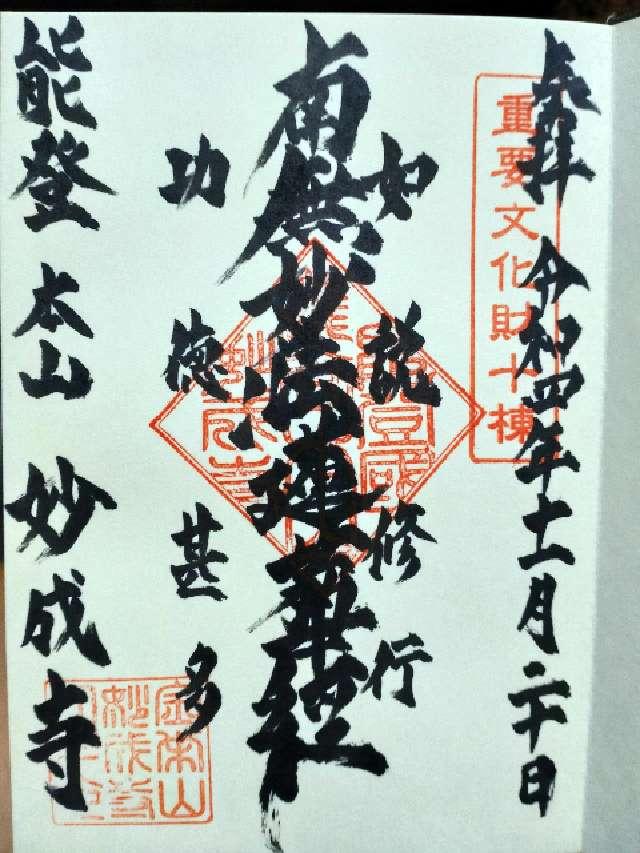 奉拝 令和四年十一月二十日
重要文化財十棟
如説修行
南無妙法蓮華経
功徳甚多
能登本山 妙成寺